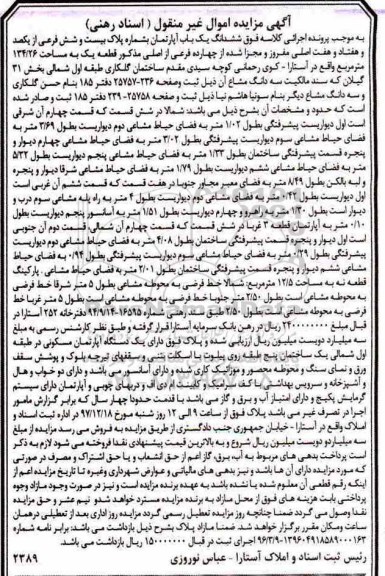 آگهی مزایده اموال غیر منقول ( اسناد رهنی)
به موجب پرونده اجرائی کلاسه فوق ششدانگ یک باب آپارتمان بشماره پلاک بیست و شش فرعی از یکصد
و هفتاد و هفت اصلی مفروز و مجزا شده از چهارده فرعی از اصلی مذکور قطعه یک به مساحت ۱۳۴/۲۶
مترمربع واقع در آستارا - کوی رحمانی کوچه سیدی مقدم ساختمان گلکاری طبقه اول شمالی بخش ۳۱
گیلان که سند مالکیت سه دانگ مشاع آن ذیل ثبت وصفحه ۲۳۶-۲۵۷۵۷ دفتر ۱۸۵ بنام حسن گلکاری
و سه دانگ مشاع دیگر بنام سونیا هاشم نیا ذیل ثبت و صفحه ۲۵۷۵۸-۲۳۹ دفتر ۱۸۵ ثبت و صادر شده
است که حدود و مشخصات آن بشرح ذیل می باشد: شمالا در شش قسمت که قسمت چهارم آن شرقی
است اول دیواریست پیشرفتگی بطول ۱/۰۲ متر به فضای حیاط مشاعی دوم دیواریست بطول ۳/۶۹ متر به
فضای حیاط مشاعی سوم دیواریست پیشرفتگی بطول ۳/۰۲ متر به فضای حیاط مشاعی چهارم دیوار و
پنجره قسمت پیشرفتگی ساختمان بطول ۱/۳۳ متر به فضای حیاط مشاعی پنجم دیواریست بطول ۵/۳۲
متر به فضای حیاط مشاعی ششم دیواریست بطول ۱/۷۹ متر به فضای حیاط مشاعی شرقا دیوار و پنجره
و لبه بالکن بطول ۸/۴۹ متر به فضای معبر مجاور جنوبا در هفت قسمت که قسمت ششم آن غربی است
اول دیواریست بطول
متر به فضای حیاط مشاعی دوم دیواریست بطول ۴ متر به راه پله مشاعی سوم درب و
دیوار است بطول ۱/۳۰ متر به راهرو و چهارم دیواریست بطول ۱/۵۱ متر به آسانسور پنجم دیواریست بطول
متر به آپارتمان قطعه ۲ غربا در شش قسمت که قسمت چهارم آن شمالی و قسمت دوم آن جنوبی
است اول دیوار و پنجره قسمت پیشرفتگی ساختمان بطول ۴/۰۸ متر به فضای حیاط مشاعی دوم دیواریست
پیشرفتگی بطول
متر به فضای حیاط مشاعی
پیشرفتگی بطول
به فضای حیاط
مشاعی ششم دیوار و پنجره قسمت پیشرفتگی ساختمان بطول ۳/۰۱ متر به فضای حیاط مشاعی . پارکینگ
قطعه نه به مساحت ۱۲/۵ مترمربع: شمالا خط فرضی به محوطه مشاعی بطول ۵ متر شرقا خط فرضی
به محوطه مشاعی است بطول ۲/۵۰ متر جنوبا خط فرضی به محوطه مشاعی است بطول ۵ متر غربا خط
فرضی به محوطه مشاعی است بطول ۲/۵۰ طبق سند رهنی شماره ۱۶۵۹۵-۹۴/۹/۱۴ دفترخانه ۲۵۲ آستارا در
قبال مبلغ ۲۴۰۰۰۰۰۰۰۰ ریال در رهن بانک سرمایه آستارا قرار گرفته و طبق نظر کارشناس رسمی به مبلغ
سه میلیارد دویست میلیون ریال ارزیابی شده و پلاک فوق دارای یک دستگاه آپارتمان مسکونی در طبقه
اول شمالی یک ساختمان پنج طبقه روی پیلوت با اسکلت بتنی و سقفهای تیرچه بلوک و پوشش سقف
ورق و نمای سنگ و محوطه محصور و موزائیک کاری شده و دارای آسانسور می باشد و دارای دو خواب و هال
و آشپزخانه و سرویس بهداشتی با کف سرامیک و کابینت ام دی اف و دربهای چوبی و آپارتمان دارای سیستم
گرمایش پکیج و دارای امتیاز آب و برق و گاز می باشد با قدمت حدودا چهار سال که برابر گزارش مامور
اجرا در تصرف غیر می باشد پلاک فوق از ساعت ۹ الی ۱۲ روز شنبه مورخ ۹۷/۱۲/۱۸ در اداره ثبت اسناد و
املاک واقع در آستارا - خیابان جمهوری جنب دادگستری از طریق مزایده به فروش می رسد مزایده از مبلغ
سه میلیارد و دویست میلیون ریال شروع و به بالاترین قیمت پیشنهادی نقدا فروخته می شود لازم به ذکر
است پرداخت بدهی های مربوط به آب، برق، گاز اعم از حق انشعاب و یا حق اشتراک و مصرف در صورتی
که مورد مزایده دارای آن ها باشد و نیز بدهی های مالیاتی و عوارض شهرداری وغیره تا تاریخ مزایده اعم از
اینکه رقم قطعی آن معلوم شده یا نشده باشد به عهده برنده مزایده است و نیز در صورت وجود مازاد وجوه
پرداختی بابت هزینه های فوق از محل مازاد به برنده مزایده مسترد خواهد شد و نیم عشر و حق مزایده
نقدا وصول می گردد ضمنا چنانچه روز مزایده تعطیل رسمی گردد مزایده روز اداری بعد از تعطیلی درهمان
ساعت ومکان مقرر برگزار خواهد شد. ضمنا مازاد پلاک بشرح ذیل بازداشت می باشد: برابر نامه شماره
۱۳۹۶۰۴۹۱۸۵۸۹۰۰۰۱۶۳-۹۶/۳/۹ اجرای ثبت آستارا در قبال ۱۵۰۰۰۰۰۰۰۰ ریال بازداشت می باشد.
رئیس ثبت اسناد و املاک آستارا - عباس نوروزی ۲۳۸۹